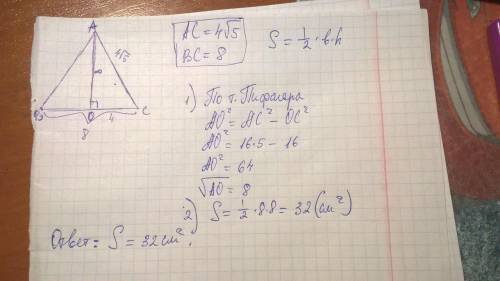 A
4√5
8
B
O
4
C
8
AC = 4√5
BC = 8
S = 1/2 · b · h
1) По т. Пифагора
AO² = AC² - OC²
AO² = 16·5 - 16
AO² = 64
√AO = 8
2) S = 1/2 · 8·8 = 32 (см²)
Ответ: S = 32 см².